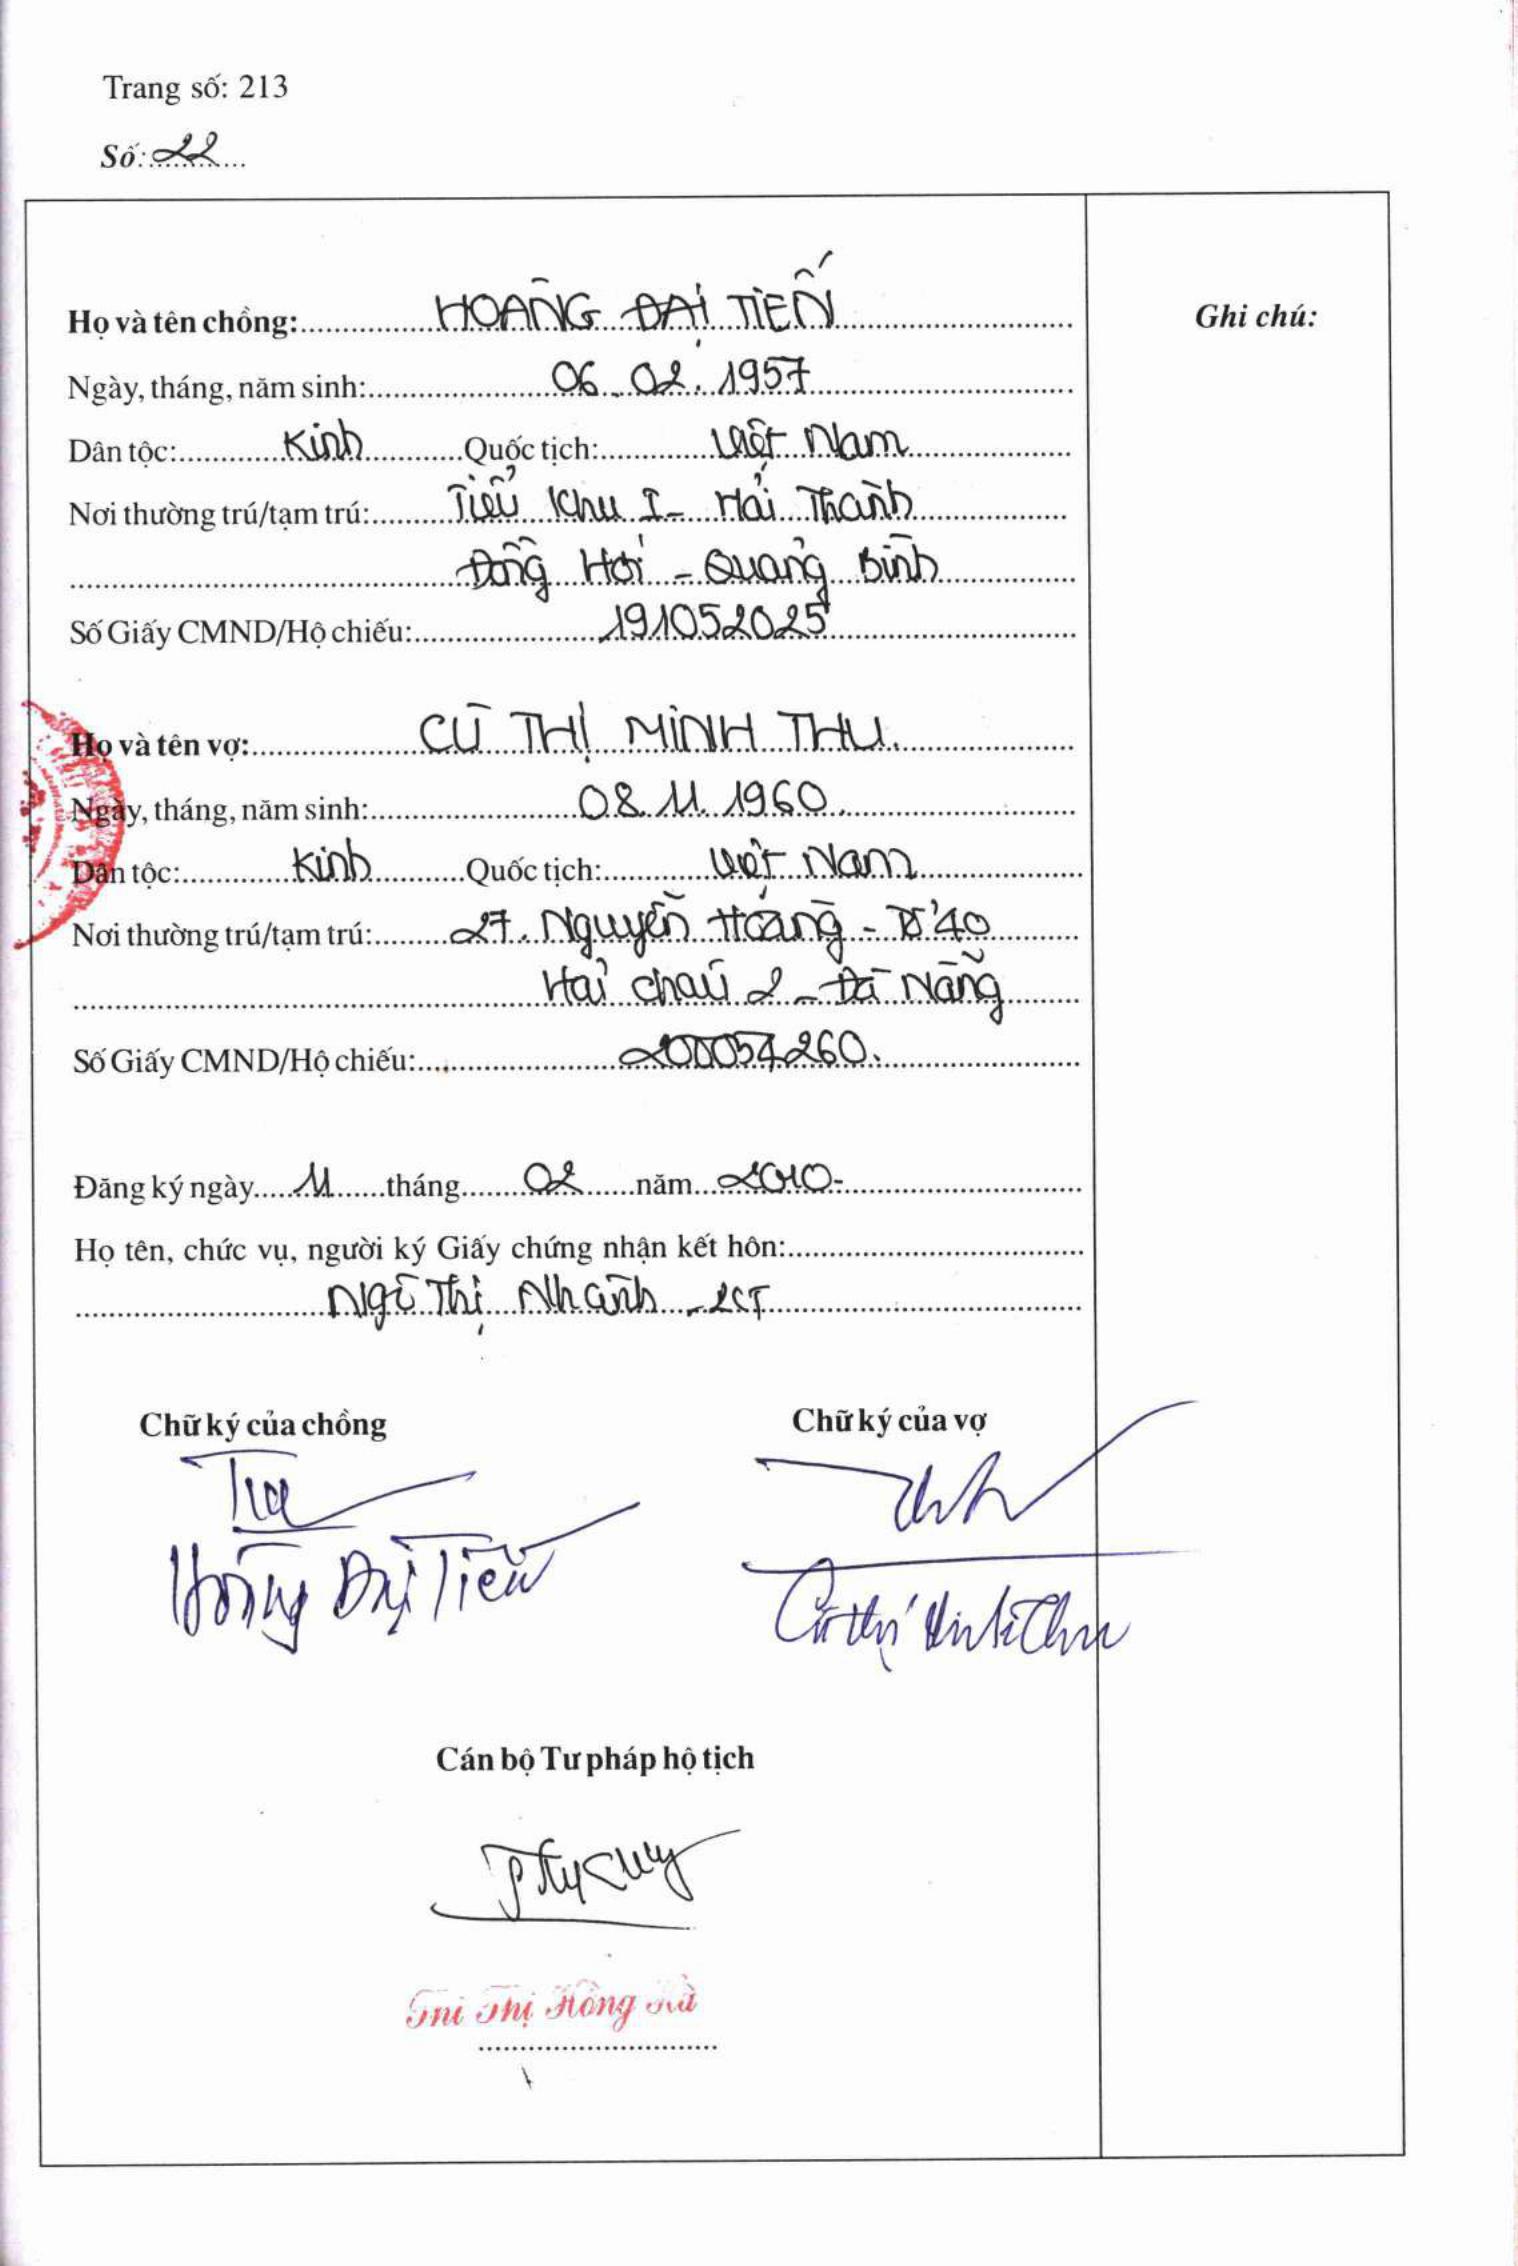 Trang số: 213
Số: 22
Họ và tên chồng: HOÀNG ĐẠI TIẾN
Ghi chú:
Ngày, tháng, năm sinh: 06.02.1957
Dân tộc: Kinh Quốc tịch: Việt Nam
Nơi thường trú/tạm trú: Tiểu khu I - Hải Thành
Đồng Hới - Quảng Bình
Số Giấy CMND/Hộ chiếu: 191052025
Họ và tên vợ: CÙ THỊ MINH THU.
Ngày, tháng, năm sinh: 08.11.1960.
Dân tộc: Kinh Quốc tịch: Việt Nam
Nơi thường trú/tạm trú: 27. Nguyễn Hoàng -
Hải Châu 2 - Đà Nẵng
Số Giấy CMND/Hộ chiếu:
Đăng ký ngày 11 tháng 02 năm 2010-
Họ tên, chức vụ, người ký Giấy chứng nhận kết hôn:
Ngô Thị Nhành -
Chữ ký của chồng
Chữ ký của vợ
Hoàng Đại Tiến
Cù Thị Minh Thu
Cán bộ Tư pháp hộ tịch
Thị Hồng Hà